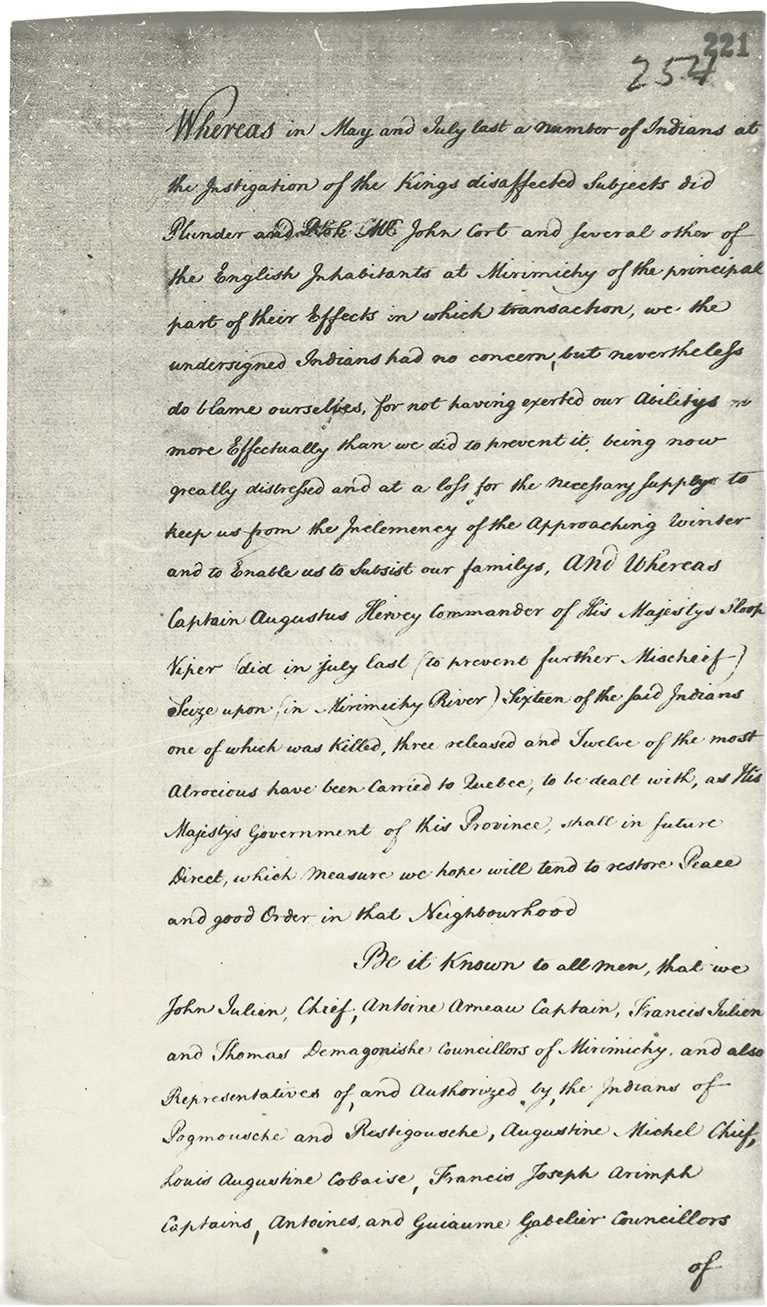 221
254
Whereas in May and July last a number of Indians at
the Instigation of the Kings disaffected Subjects did
Plunder and John Cort and several other of
the English Inhabitants at Mirimichy of the principal
part of their Effects in which transaction, we the
undersigned Indians had no concern, but nevertheless
do blame ourselves, for not having exerted our Abilitys
more Effectually than we did to prevent it, being now
greatly distressed and at a loss for the necessary supplys to
keep us from the Inclemency of the Approaching Winter
and to Enable us to Subsist our familys, And Whereas
Captain Augustus Hervey Commander of His Majestys Sloop
Viper (did in July last (to prevent further Mischief)
Seize upon (in Mirimichy River) Sixteen of the said Indians
one of which was Killed, three released and Twelve of the most
Atrocious have been Carried to Quebec, to be dealt with, as His
Majestys Government of this Province, shall in future
Direct, which Measure we hope will tend to restore Peace
and good Order in that Neighbourhood
Be it Known to all men, that we
John Julien, Chief, Antoine Arneau Captain, Francis Julien
and Thomas Demagonishe Councillors of Mirimichy, and also
Representatives of, and Authorized by, the Indians of
Pogmousche and Restigousche, Augustine Michel Chief,
Louis Augustine Cobaise, Francis Joseph Arimph
Captains, Antoines, and Guiaume Gabelier Councillors
of